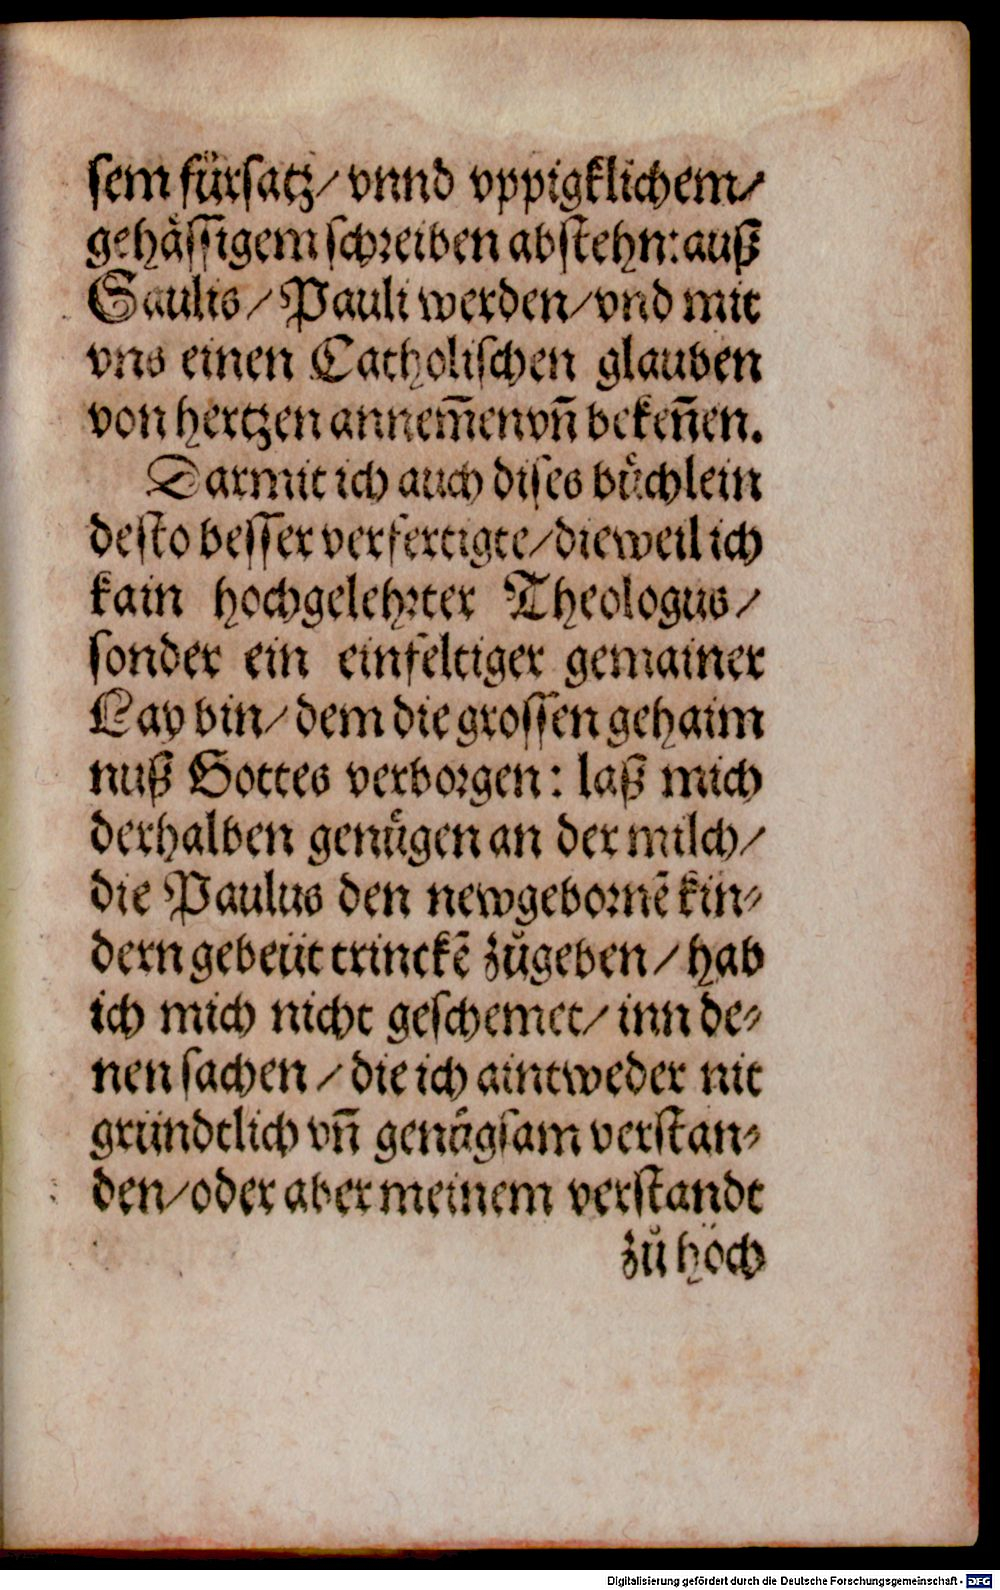 sem fürsatz/ vnnd vppigklichem/
gehässigem schreiben abstehn: auß
Saulis/ Pauli werden/ vnd mit
vns einen Catholischen glauben
von hertzen annem̄en vn̄ beken̄en.
Darmit ich auch dises büchlein
desto besser verfertigte/ dieweil ich
kain hochgelehrter Theologus/
sonder ein einfeltiger gemainer
Lay bin/ dem die grossen gehaim
nuß Gottes verborgen: laß mich
derhalben genügen an der milch/
die Paulus den newgebornē kin-
dern gebeüt trinckē zůgeben/ hab
ich mich nicht geschemet/ inn de-
nen sachen/ die ich aintweder nit
gründtlich vn̄ genůgsam verstan-
den/ oder aber meinem verstandt
zů höch
Digitalisierung gefördert durch die Deutsche Forschungsgemeinschaft - DFG